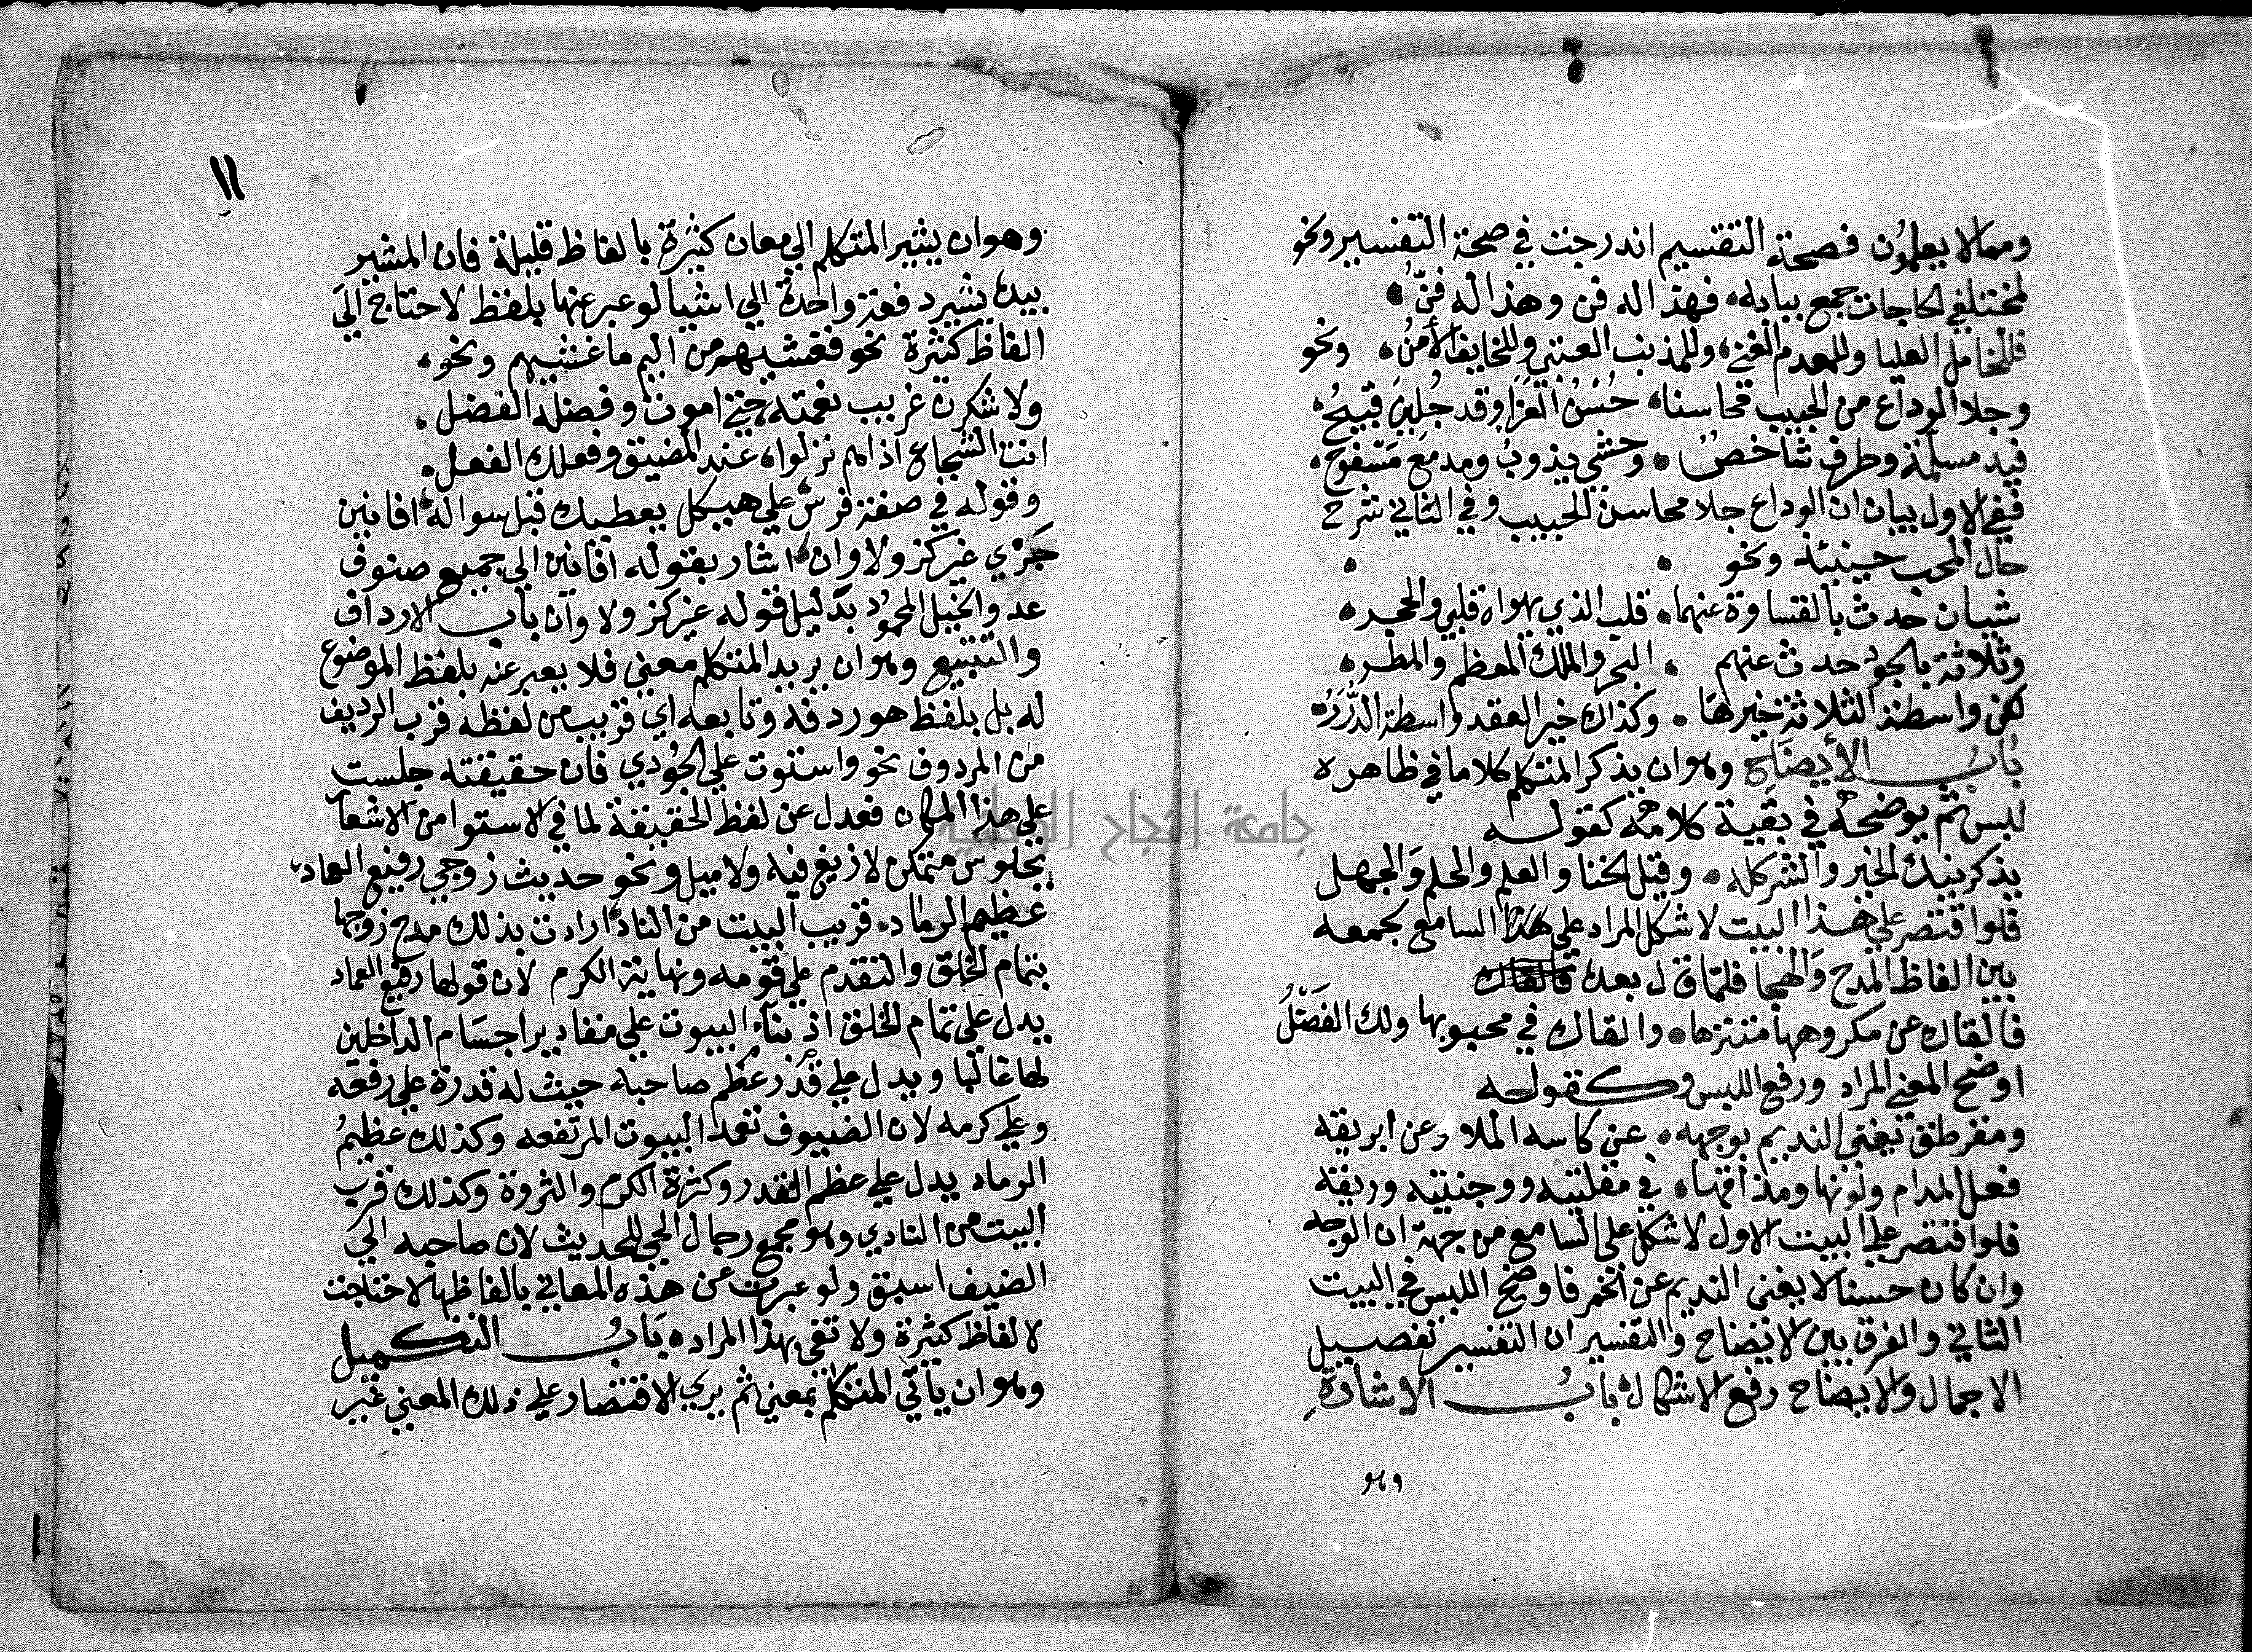 ومما لا يعلمون فصحة التقسيم اندرجت في صحة التفسير ونحو
لمختلفي الحاجات جمع ببابه فهذا له فن وهذا له فنّ
فللخامل العليا وللمعدم الغني وللمذنب العتبي وللخايف الأمنُ ونحو
وجلا الوداع من الحبيب محاسنا حُسْنُ العزا وقد جُلِينَ قبيحُ
فيد مسلمة وطرف شاخصٌ وحشي يذوبُ ومدمع مَسْفوح
ففي الاول بيان ان الوداع جلا محاسن الحبيب وفي الثاني شرح
حال المحب حينئذ ونحو
شيان حدث بالقساوة عنهما قلب الذي يهواه قلبي والحجر
وثلاثة بالجود حدث عنهم البحر والملك المعظم والمطر
لكن واسطة الثلاثة خيرها وكذاك خير العقد واسطة الدُّرَرُ
بابُ الأيضاح وهو ان يذكر المتكلم كلاما في ظاهره
لبس ثم يوضحه في بقية كلامه كقوله
يذكرنيك الخير والشر كله وقيل الخنا والعلم والحلم والجهل
فلو اقتصر علي هذا البيت لاشكل المراد علي السامع لجمعه
بين الفاظ المدح والهجا فلما قال بعده
فالقاك عن مكروهها متنزها والقاك في محبوبها ولك الفَضْلُ
اوضح المعني المراد ورفع اللبس وكقوله
ومقرطق يغني النديم بوجهه عن كاسه الملا وعن ابريقه
فعل المدام ولونها ومذاقها في مقلتيه ووجنتيه وريقه
فلو اقتصر علي البيت الاول لاشكل علي السامع من جهة ان الوجه
وان كان حسنا لا يغني النديم عن الخمر فاوضح اللبس في البيت
الثاني والفرق بين الايضاح والتفسير ان التفسير تفصيل
الاجمال والايضاح رفع الاشكال بابُ الاشارة
وهو
١١
وهو ان يشير المتكلم الي معان كثيرة بالفاظ قليلة فان المشير
بيده يشير دفعة واحدة الي اشيا لو عبر عنها بلفظ لاحتاج الَي
الفاظ كثيرة نحو فغشيهم من اليم ما غشيهم ونحو
ولا شكرن غريب نعمته حتي اموت وفضله الفضل
انت الشجاع اذا هم نزلوا عند المضيق وفعلك الفعل
وقوله في صفة فرس علي هيكل يعطيك قبل سواله افانين
جري غير كز ولا وان اشار بقوله افانين الي جميع صنوف
عدو الخيل المحمود بدليل قوله غير كز ولا وان باب الارداف
والتتبيع وهو ان يريد المتكلم معني فلا يعبر عنه بلفظ الموضوع
له بل بلفظ هو ردفه وتابعه اي قريب من لفظه قرب الرديف
من المردوف نحو واستوت علي الجودي فان حقيقته جلست
علي هذا المكان فعدل عن لفظ الحقيقة لما في الاستوا من الاشعا
بجلوس متمكن لا زيغ فيه ولا ميل ونحو حديث زوجي رفيع العماد
عظيم الرماد قريب البيت من الناد ارادت بذلك مدح زوجها
بتمام الخلق والتقدم علي قومه ونهاية الكرم لان قولها رفيع العماد
يدل علي تمام الخلق اذ بناء البيوت علي مقادير اجسام الداخلين
لها غالبا ويدل علي قدر عظم صاحبه حيث له قدرة علي رفعه
وعلي كرمه لان الضيوف تعمد البيوت المرتفعه وكذلك عظيمُ
الرماد يدل علي عظم القدر وكثرة الكرم والثروة وكذلك قرب
البيت من النادي وهو مجمع رجال الحي للحديث لان صاحبه الي
الضيف اسبق ولو عبرت عن هذه المعاني بالفاظها لاحتاجت
لالفاظ كثيرة ولا تفي بهذا المراد بابُ التكميل
وهو ان ياتي المتكلم بمعني ثم يري الاقتصار علي ذلك المعني غير
جامعة النجاح الوطنية